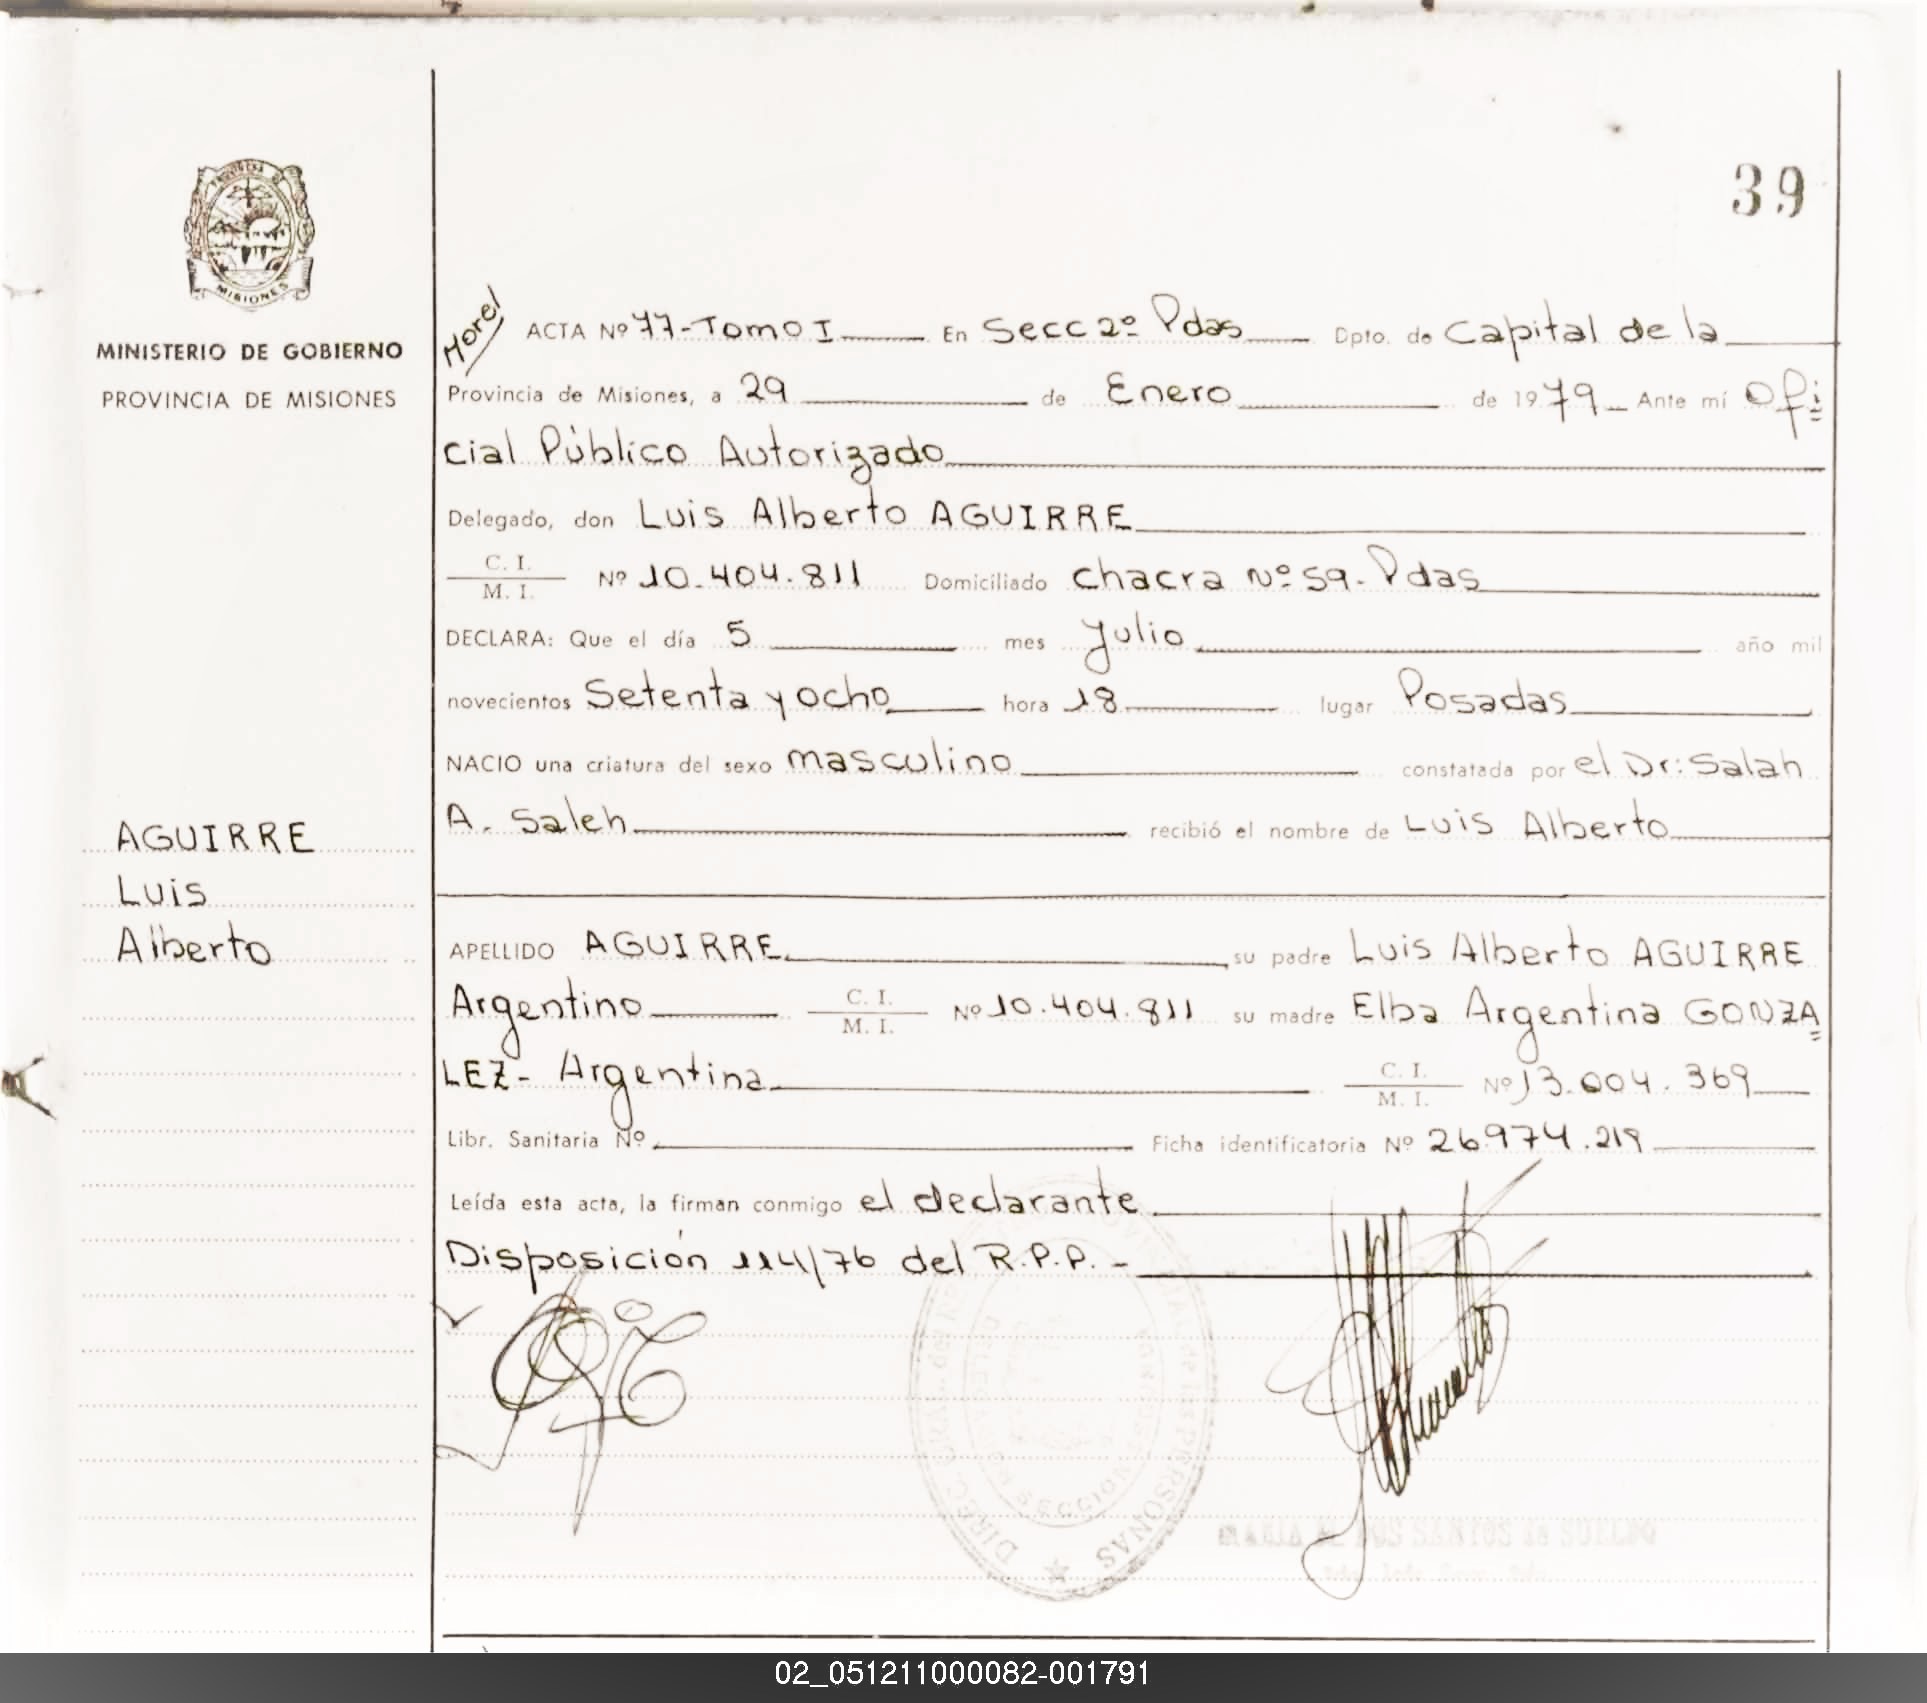 39
PROVINCIA DE
MISIONES
MINISTERIO DE GOBIERNO
PROVINCIA DE MISIONES
AGUIRRE
Luis
Alberto
Morel
ACTA Nº 77-Tomo I En Secc 2º Pdas Dpto. de Capital de la
Provincia de Misiones, a 29 de Enero de 1979 Ante mí Ofi
cial Público Autorizado
Delegado, don Luis Alberto AGUIRRE
C. I.
M. I. Nº 10.404.811 Domiciliado Chacra Nº 59. Pdas
DECLARA: Que el día 5 mes Julio año mil
novecientos Setenta y ocho hora 18 lugar Posadas
NACIO una criatura del sexo masculino constatada por el Dr: Salah
A. Saleh recibió el nombre de Luis Alberto
APELLIDO AGUIRRE su padre Luis Alberto AGUIRRE
Argentino C. I.
M. I. Nº 10.404.811 su madre Elba Argentina GONZA
LEZ- Argentina C. I.
M. I. Nº 13.004.369
Libr. Sanitaria Nº Ficha identificatoria Nº 26.974.219
Leída esta acta, la firman conmigo el declarante
Disposición 114/76 del R.P.P. -
DIREC. GRAL. del PROVINCIAL de las PERSONAS
SECCION
MARIA DOS SANTOS de
02_051211000082-001791